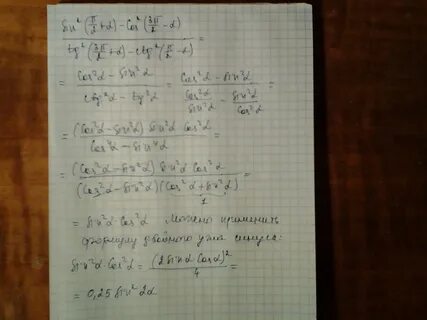 sin²(π/2 + α) - cos²(3π/2 - α) / tg²(3π/2 + α) - ctg²(π/2 - α) =
= cos²α - sin²α / ctg²α - tg²α = cos²α - sin²α / cos²α/sin²α - sin²α/cos²α =
= (cos²α - sin²α) sin²α cos²α / cos⁴α - sin⁴α =
= (cos²α - sin²α) sin²α cos²α / (cos²α - sin²α)(cos²α + sin²α) =
1
= sin²α cos²α Можно применить
формулу двойного угла синуса:
sin²α · cos²α = (2 sin α cos α)² / 4 =
= 0,25 sin² 2α